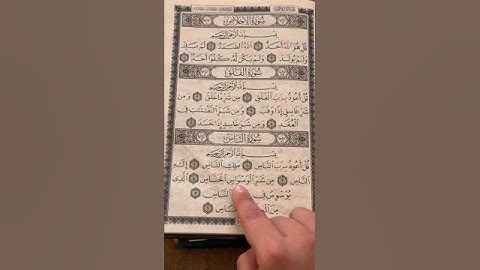 سُورَةُ الإِخْلَاصِ
بِسْمِ اللَّهِ الرَّحْمَٰنِ الرَّحِيمِ
قُلْ هُوَ اللَّهُ أَحَدٌ ۝ اللَّهُ الصَّمَدُ ۝ لَمْ يَلِدْ
وَلَمْ يُولَدْ ۝ وَلَمْ يَكُن لَّهُ كُفُوًا أَحَدٌ ۝
سُورَةُ الْفَلَقِ
بِسْمِ اللَّهِ الرَّحْمَٰنِ الرَّحِيمِ
قُلْ أَعُوذُ بِرَبِّ الْفَلَقِ ۝ مِن شَرِّ مَا خَلَقَ ۝ وَمِن
شَرِّ غَاسِقٍ إِذَا وَقَبَ ۝ وَمِن شَرِّ النَّفَّٰثَٰتِ فِي
الْعُقَدِ ۝ وَمِن شَرِّ حَاسِدٍ إِذَا حَسَدَ ۝
سُورَةُ النَّاسِ
بِسْمِ اللَّهِ الرَّحْمَٰنِ الرَّحِيمِ
قُلْ أَعُوذُ بِرَبِّ النَّاسِ ۝ مَلِكِ النَّاسِ ۝ إِلَٰهِ
النَّاسِ ۝ مِن شَرِّ الْوَسْوَاسِ الْخَنَّاسِ ۝ الَّذِي
يُوَسْوِسُ فِي النَّاسِ ۝
مِنَ